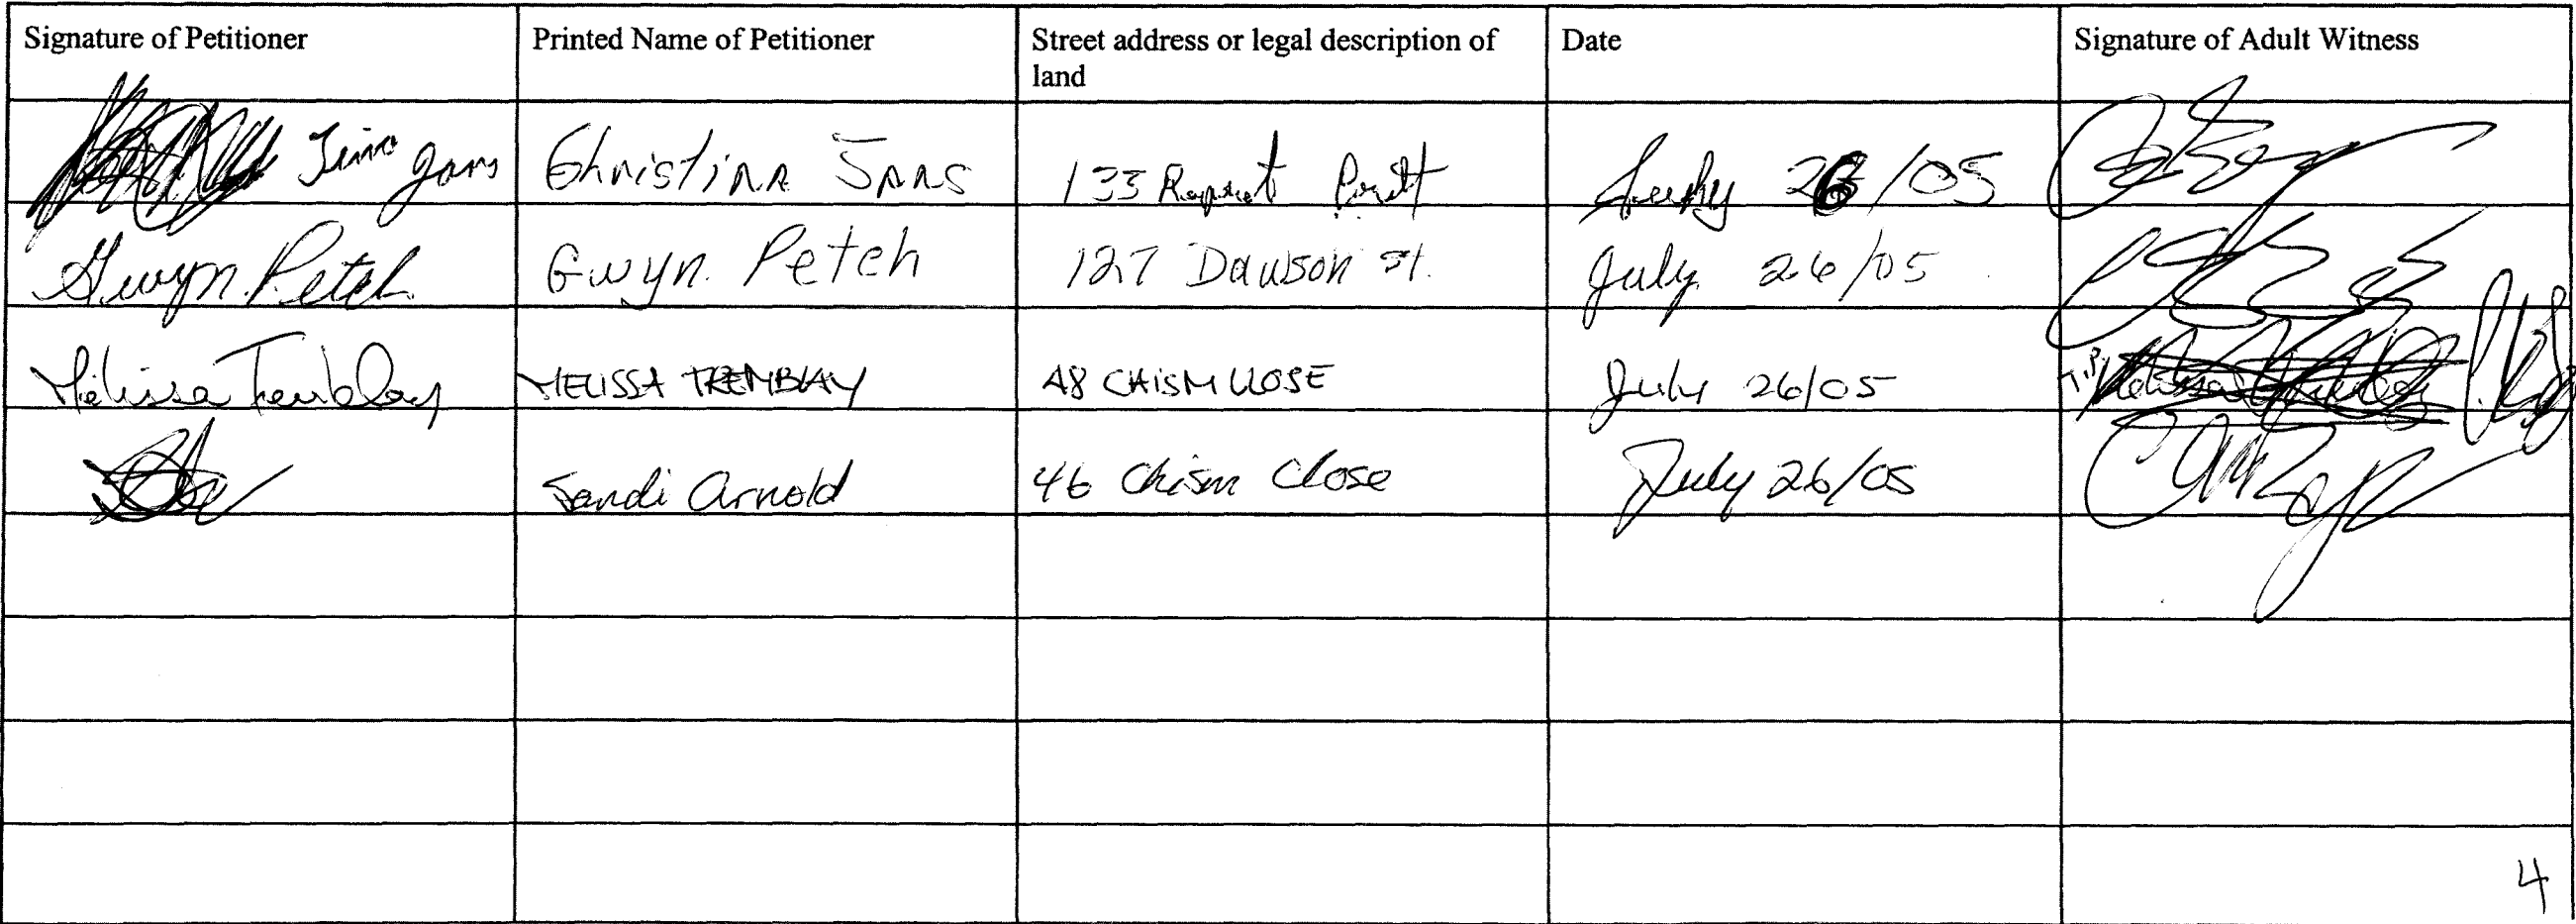 Signature of Petitioner
Printed Name of Petitioner
Street address or legal description of
land
Date
Signature of Adult Witness
Christina
133
26/05
Gwyn. Petch
Gwyn. Petch
127 Dawson St.
July 26/05
Melissa Tremblay
MELISSA TREMBLAY
48 CHISM CLOSE
July 26/05
T.P.
Sandi Arnold
46 Chism Close
July 26/05
4